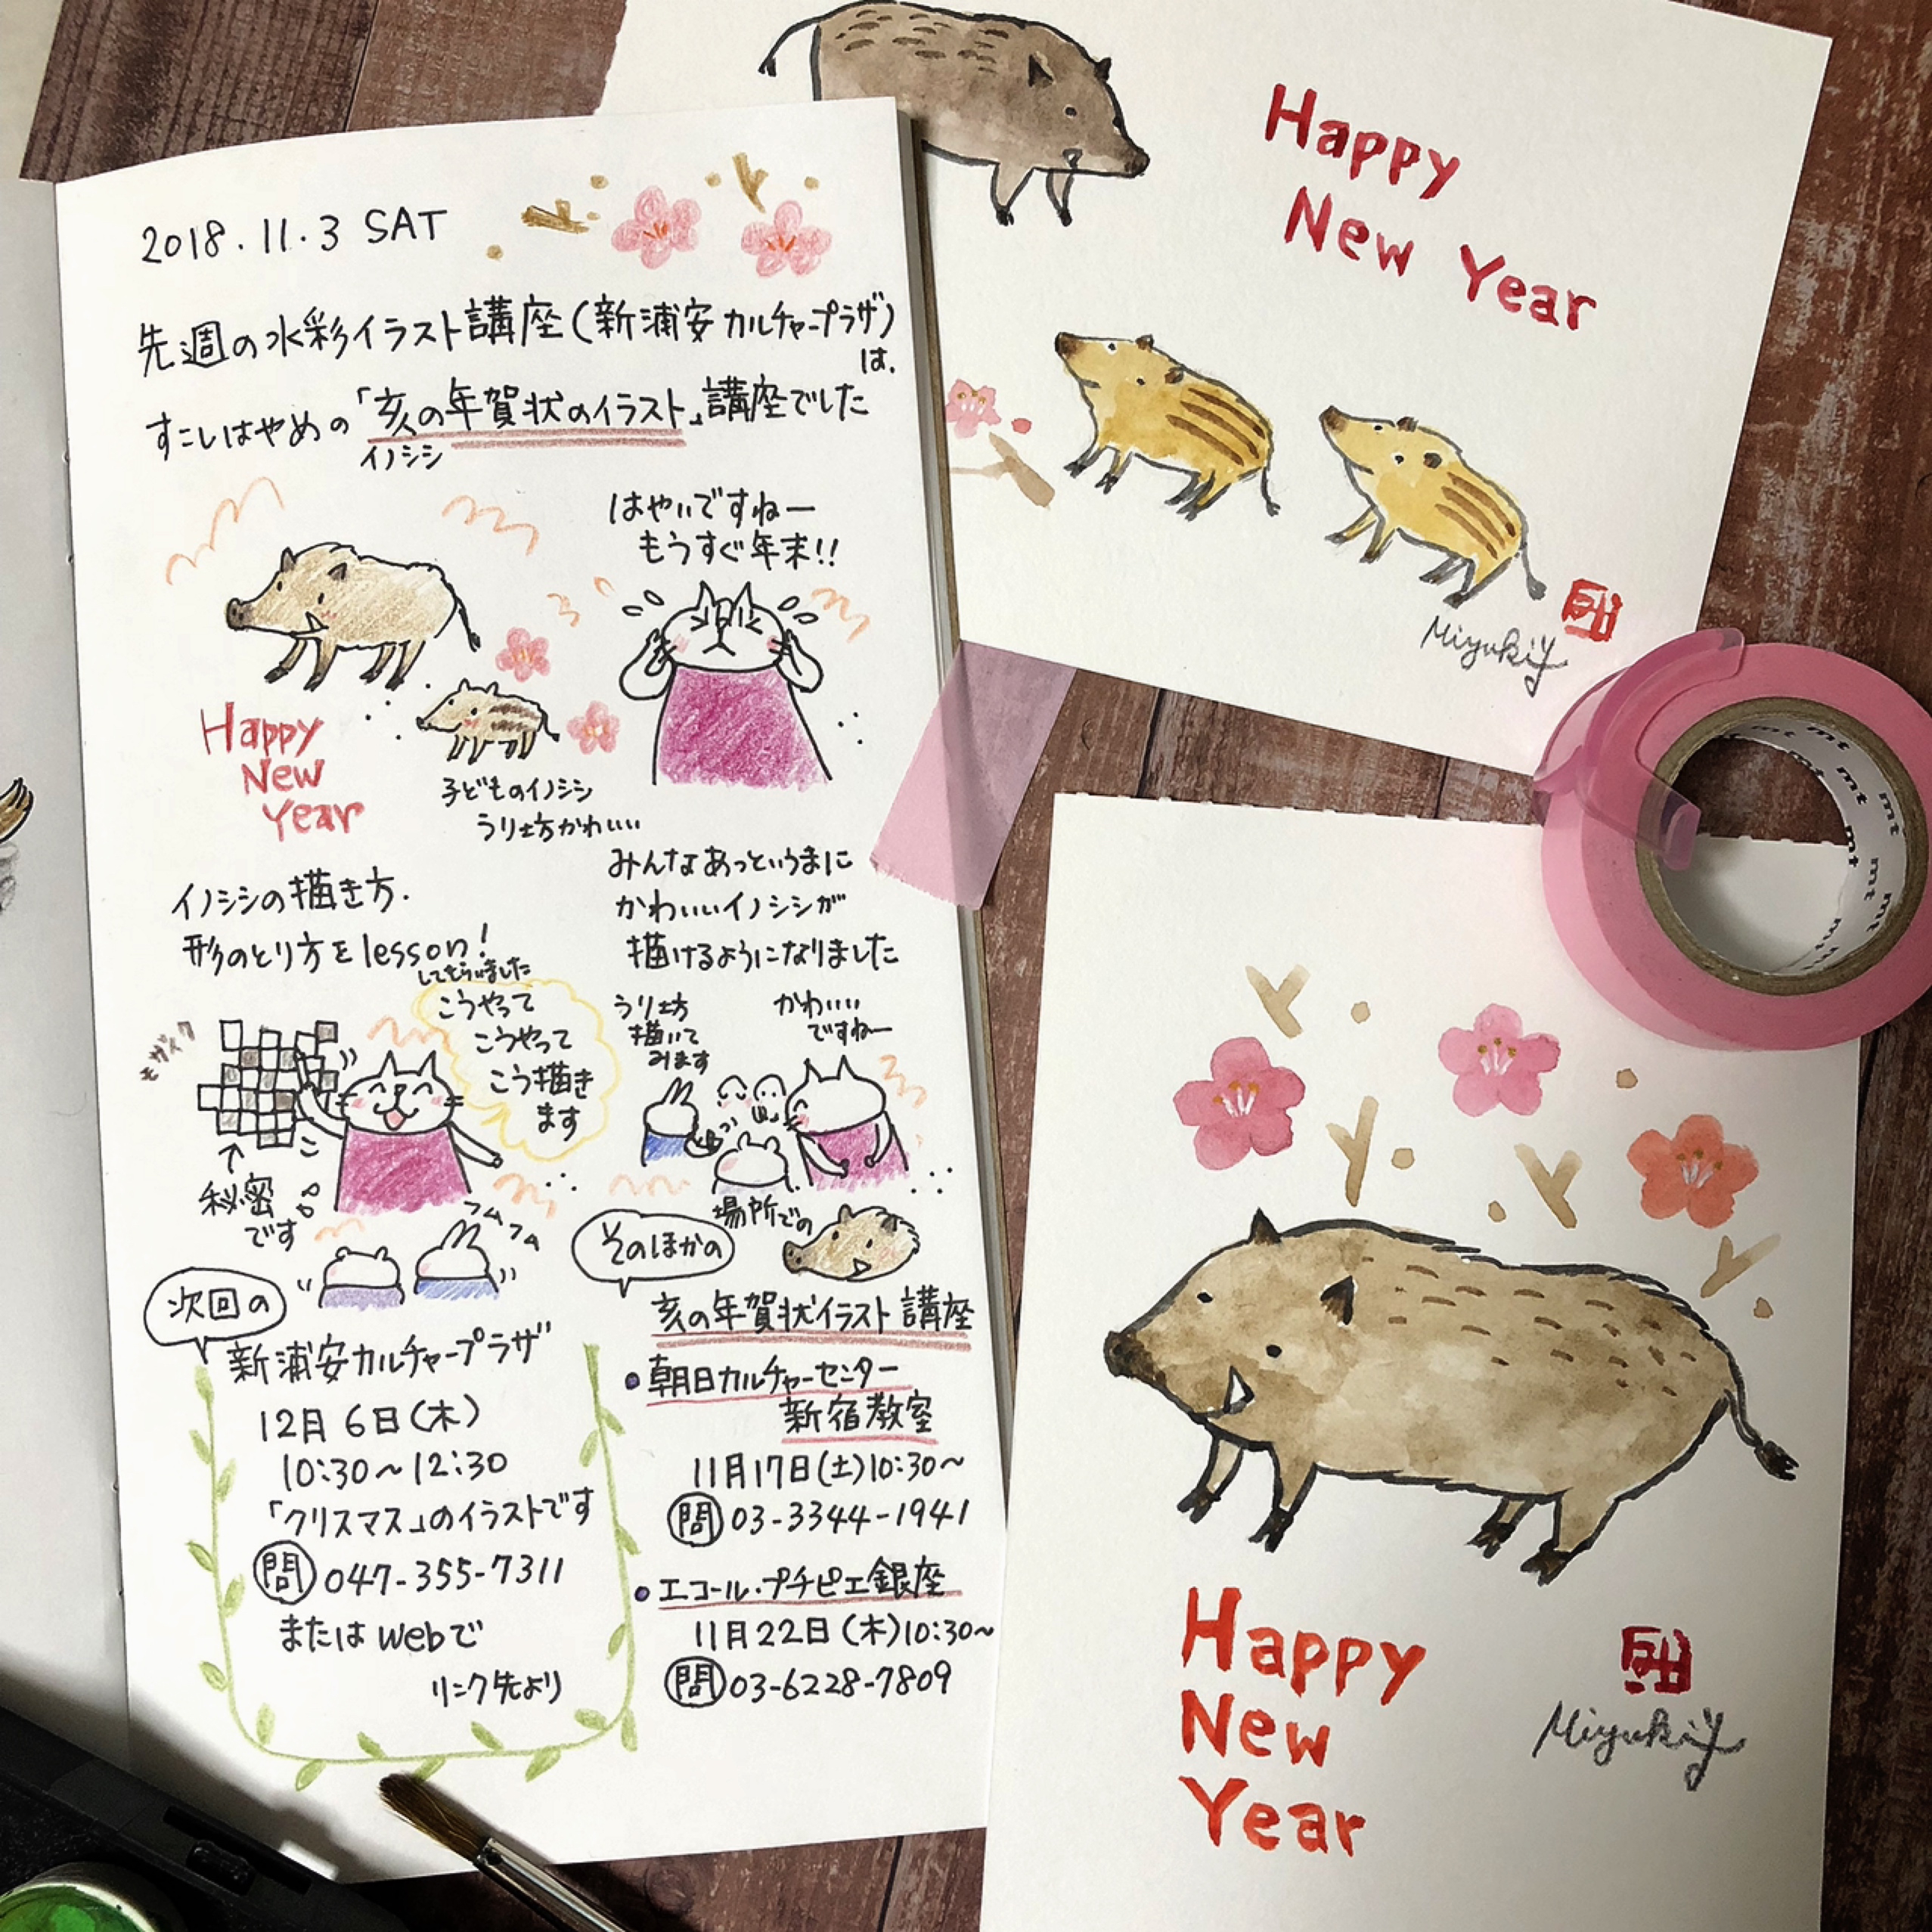 2018.11.3 SAT
先週の水彩イラスト講座(新浦安カルチャープラザ)
は、
すこしはやめの「亥の年賀状のイラスト」講座でした
イノシシ
はやいですねー
もうすぐ年末!!
Happy
New
Year
子どものイノシシ
うり坊かわいい
イノシシの描き方.
形のとり方をlesson!
してもらいました
みんなあっというまに
かわいいイノシシが
描けるようになりました
モザイク
こうやって
こうやって
こう描き
ます
↑
秘密
です
フムフム
うり坊
描いて
みます
かわいい
ですねー
次回の
新浦安カルチャープラザ
12月6日(木)
10:30~12:30
「クリスマス」のイラストです
問 047-355-7311
またはwebで
リンク先より
そのほかの
場所での
亥の年賀状イラスト講座
・朝日カルチャーセンター
新宿教室
11月17日(土)10:30~
問 03-3344-1941
・エコール・プチピエ銀座
11月22日(木)10:30~
問 03-6228-7809
Happy
New Year
MiyukiY
mt mt mt mt mt mt
Happy
New
Year
MiyukiY